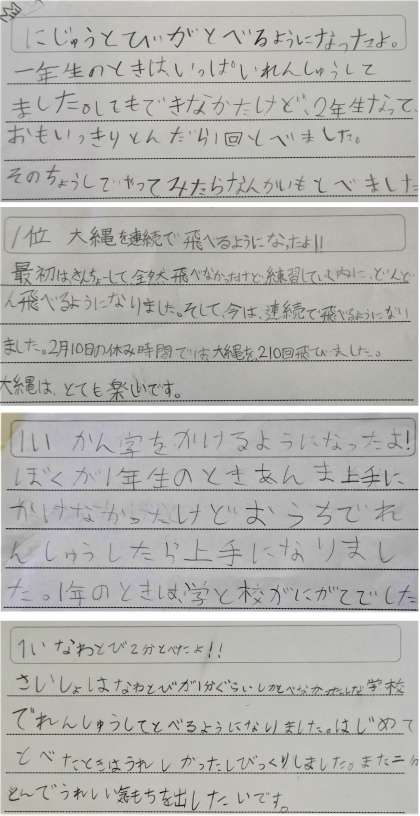 にじゅうとびがとべるようになったよ。
一年生のときは、いっぱいれんしゅうして
ました。してもできなかたけど、2年生なって、
おもいっきりとんだら1回とべました。
そのちょうしでやってみたらなんかいもとべました
1位 大縄を連続で飛べるようになったよ!!
最初はきんちょーして、全然飛べなかったけど練習していく内に、どんど
ん飛べるようになりました。そして、今は、連続で飛べるようになり
ました。2月10日の休み時間では大縄を、210回飛びました。
大縄は、とても楽しいです。
1い かん字をかけるようになったよ!
ぼくが1年生のときあんま上手に
かけなかったけどおうちでれ
んしゅうしたら上手になりまし
た。1年のときは、学と校がにがてでした
1い なわとび2分とべたよ!!
さいしょはなわとびが1分ぐらいしかとべなかった 学校
でれんしゅうしてとべるようになりました。はじめて
とべたときはうれしかったしびっくりしました。また二分
とんでうれしい気もちを出したいです。